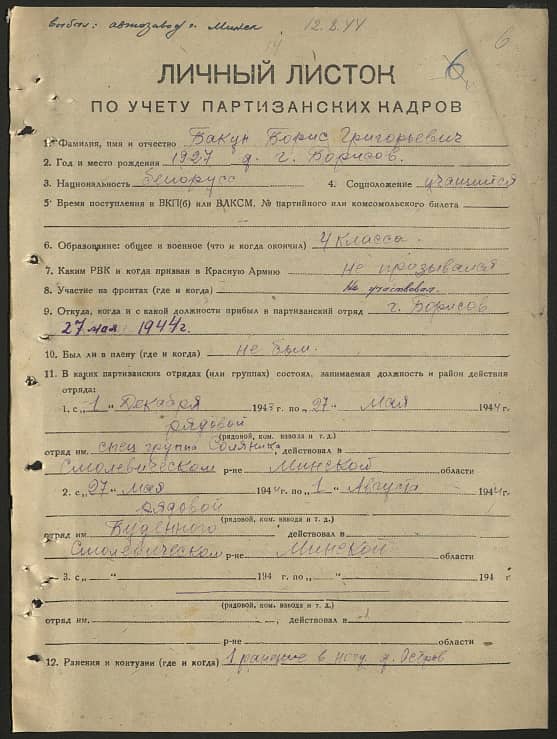 выбыл: автозавод г. Минск 12.8.44
6
ЛИЧНЫЙ ЛИСТОК
ПО УЧЕТУ ПАРТИЗАНСКИХ КАДРОВ
1. Фамилия, имя и отчество Бакун Борис Григорьевич
2. Год и место рождения 1927 г. г. Борисов.
3. Национальность белорусс 4. Соцположение учащийся
5. Время поступления в ВКП(б) или ВЛКСМ, № партийного или комсомольского билета
6. Образование: общее и военное (что и когда окончил) 4 класса.
7. Каким РВК и когда призван в Красную Армию не призывался
8. Участие на фронтах (где и когда) Не участвовал.
9. Откуда, когда и с какой должности прибыл в партизанский отряд г. Борисов
27 мая 1944 г.
10. Был ли в плену (где и когда) не был.
11. В каких партизанских отрядах (или группах) состоял, занимаемая должность и район действия
отряда:
1. с „1“ Декабря 1943 г. по „27“ мая 1944 г.
рядовой
(рядовой, ком. взвода и т. д.)
отряд им. спец группа Соляника, действовал в
Смолевическом р-не Минской области
2. с „27“ мая 1944 г. по „1“ Августа 1944 г.
рядовой
(рядовой, ком. взвода и т. д.)
отряд им. Буденного действовал в
Смолевическом р-не Минской области
3. с „ “ 194 г. по „ “ 194 г.
(рядовой, ком. взвода и т. д.)
отряд им. действовал в
р-не области
12. Ранения и контузии (где и когда) 1 ранение в ногу д. Остров